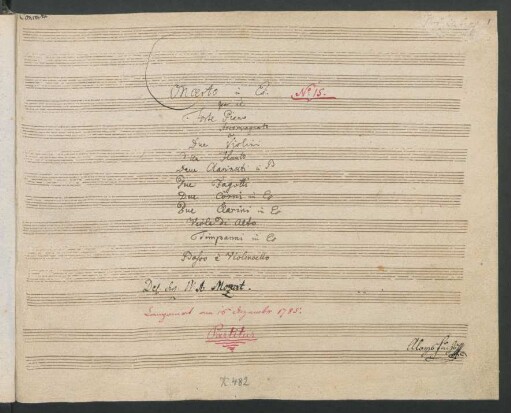 Concerto in Es. No 15.
per il
Forte Piano
Accompagnato
Due Violini
Flauto
Due Clarinetti in B
Due Fagotti
Due Corni in Es
Due Clarini in Es
Viole di Alto
Timpanni in Es
Basso e Violoncello
Del Sig W. A. Mozart.
16 Dezember 1785.
Partitur
Aloys Fuchs
K. 482